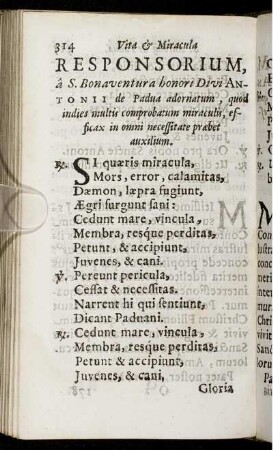 314 Vita & Miracula
RESPONSORIUM,
â S. Bonaventura honori Divi AN-
TONII de Padua adornatum, quod
indies multis comprobatum miraculis, ef-
ficax in omni necessitate præbet
auxilium.
℟. SI quæris miracula,
Mors, error, calamitas,
Dæmon, læpra fugiunt,
Ægri surgunt sani:
Cedunt mare, vincula,
Membra, resque perditas,
Petunt, & accipiunt,
Juvenes, & cani.
℣. Pereunt pericula,
Cessat & necessitas.
Narrent hi qui sentiunt,
Dicant Paduani.
℟. Cedunt mare, vincula,
Membra, resque perditas,
Petunt & accipiunt,
Juvenes, & cani,
Gloria